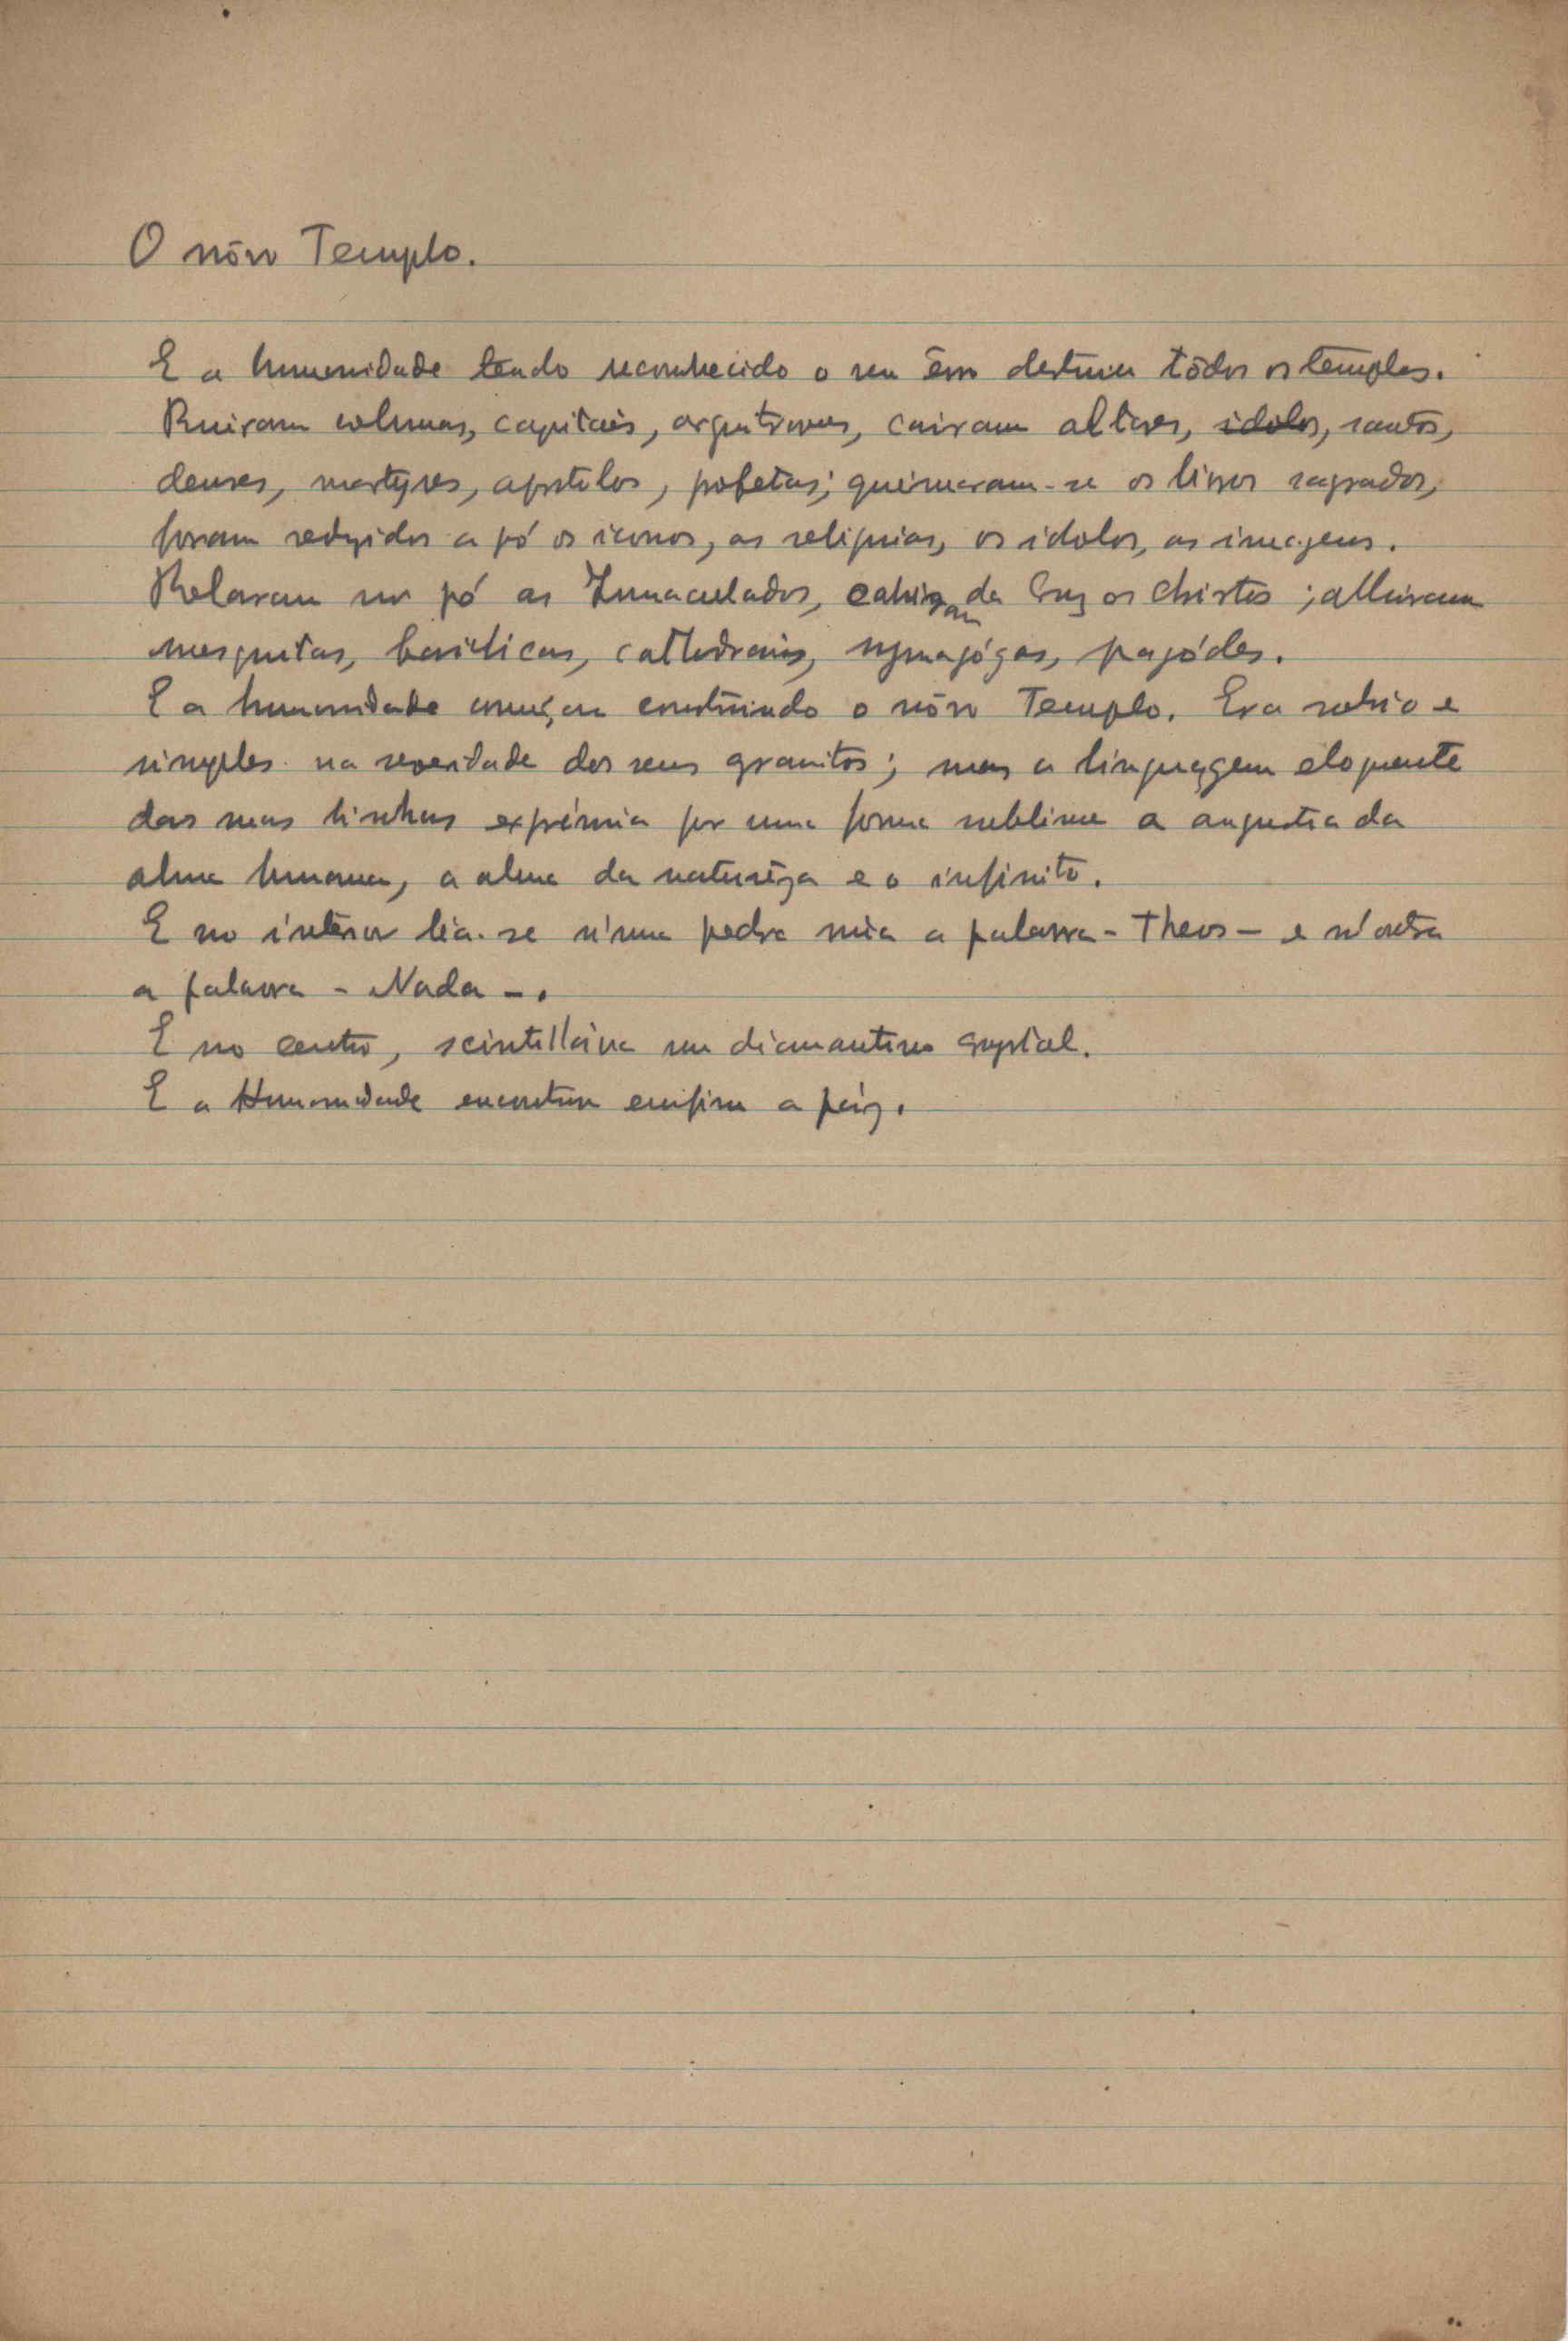 O nôvo Templo.
E a humanidade tendo reconhecido o seu êrro destruiu tôdos os templos.
Ruiram columnas, capitáis, arquitraves, cairam altares, idolos, santos,
deuses, martyres, apostolos, profetas; queimaram-se os livros sagrados,
foram reduzidos a pó os iconos, as reliquias, os idolos, as imagens.
Rolaram no pó as Immaculadas, cahiram da Cruz os Christos; alluiram
mesquitas, basilicas, cathedrais, synagógas, pagódes.
E a humanidade começou construindo o nôvo Templo. Era sobrio e
simples na severidade dos seus granitos; mas a linguagem eloquente
das suas linhas exprimia por uma forma sublime a angustia da
alma humana, a alma da naturêza e o infinito.
E no interior lia-se n'uma pedra núa a palavra - Theos - e n'outra
a palavra - Nada -.
E no centro, scintilláva um diamantino crystal.
E a Humanidade encontrou emfim a páz.